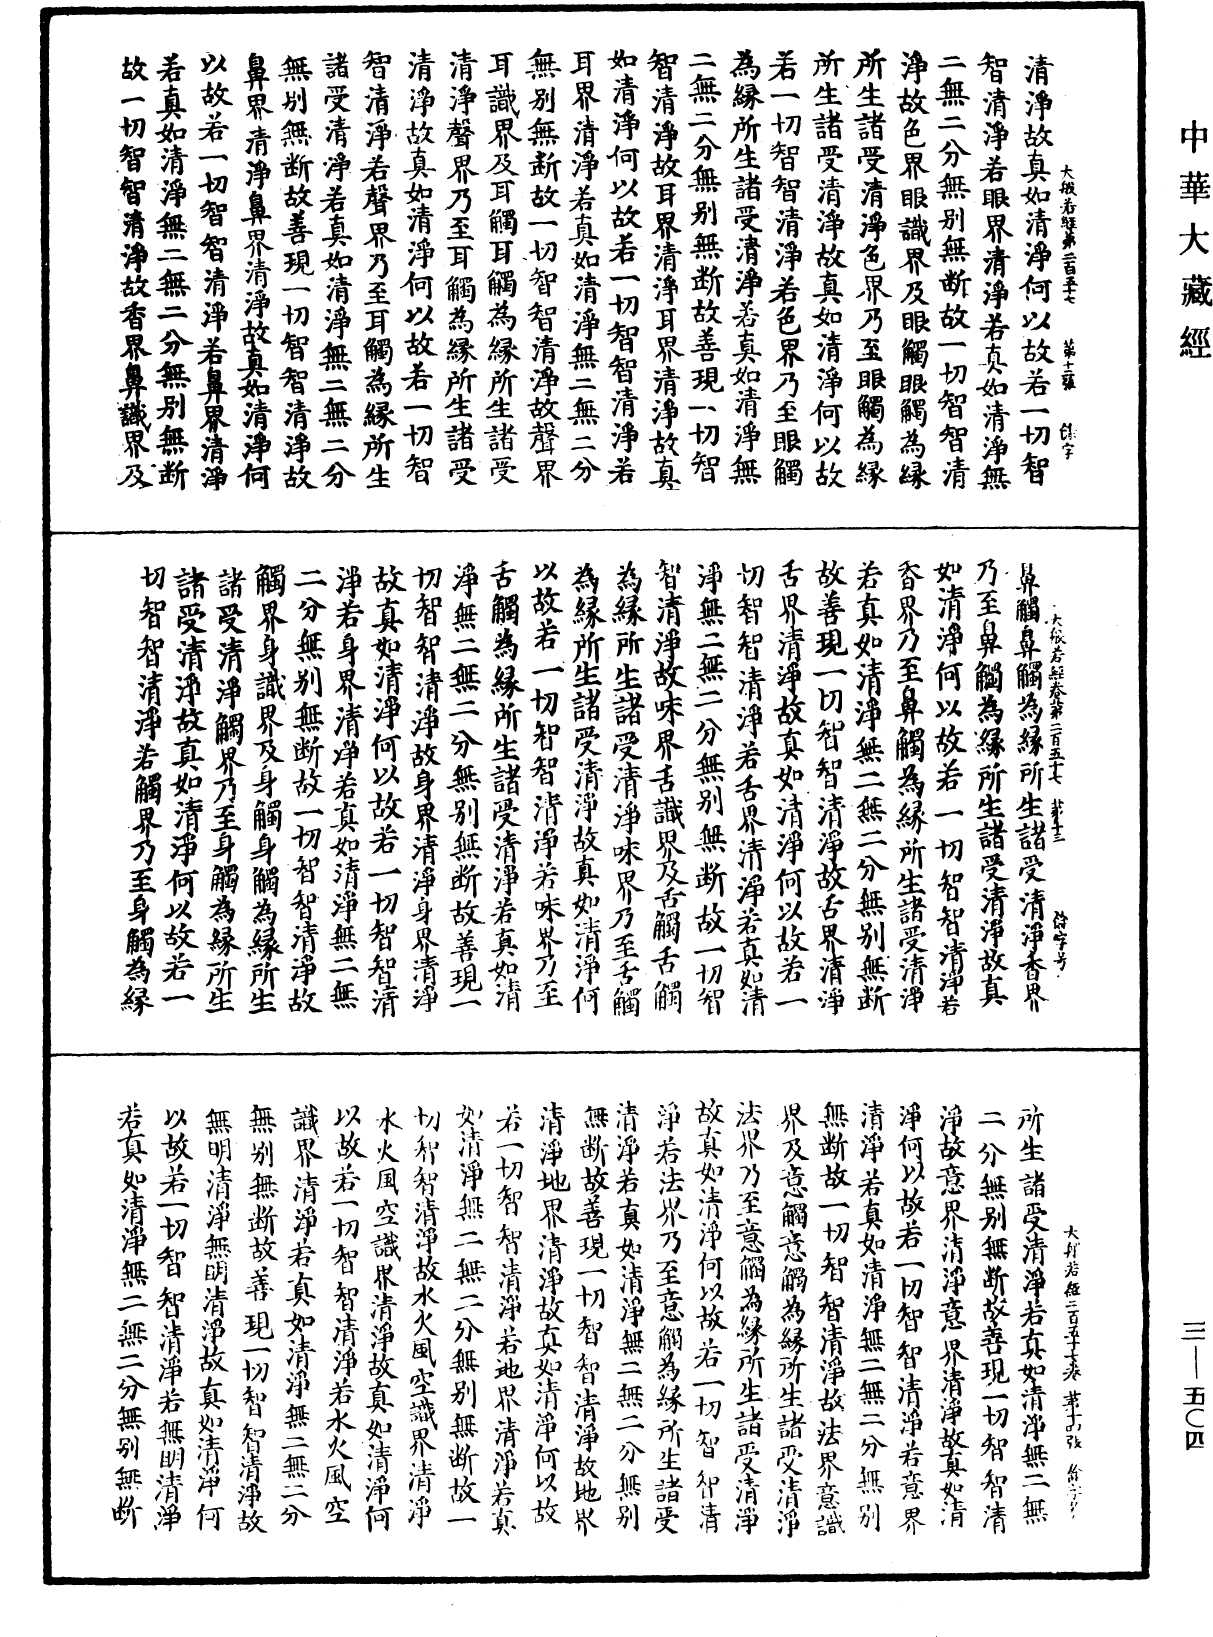 中華大藏經
清淨故真如清淨何以故若一切智
智清淨若眼界清淨若真如清淨無
二無二分無别無斷故一切智智清
淨故色界眼識界及眼觸眼觸為縁
所生諸受清淨色界乃至眼觸為縁
所生諸受清淨故真如清淨何以故
若一切智智清淨若色界乃至眼觸
為縁所生諸受清淨若真如清淨無
二無二分無别無斷故善現一切智
智清淨故耳界清淨耳界清淨故真
如清淨何以故若一切智智清淨若
耳界清淨若真如清淨無二無二分
無别無斷故一切智智清淨故聲界
耳識界及耳觸耳觸為縁所生諸受
清淨聲界乃至耳觸為縁所生諸受
清淨故真如清淨何以故若一切智
智清淨若聲界乃至耳觸為縁所生
諸受清淨若真如清淨無二無二分
無别無斷故善現一切智智清淨故
鼻界清淨鼻界清淨故真如清淨何
以故若一切智智清淨若鼻界清淨
若真如清淨無二無二分無别無斷
故一切智智清淨故香界鼻識界及
大般若經第二百五十七 第十二張
鼻觸鼻觸為縁所生諸受清淨香界
乃至鼻觸為縁所生諸受清淨故真
如清淨何以故若一切智智清淨若
香界乃至鼻觸為縁所生諸受清淨
若真如清淨無二無二分無别無斷
故善現一切智智清淨故舌界清淨
舌界清淨故真如清淨何以故若一
切智智清淨若舌界清淨若真如清
淨無二無二分無别無斷故一切智
智清淨故味界舌識界及舌觸舌觸
為縁所生諸受清淨味界乃至舌觸
為縁所生諸受清淨故真如清淨何
以故若一切智智清淨若味界乃至
舌觸為縁所生諸受清淨若真如清
淨無二無二分無别無斷故善現一
切智智清淨故身界清淨身界清淨
故真如清淨何以故若一切智智清
淨若身界清淨若真如清淨無二無
二分無别無斷故一切智智清淨故
觸界身識界及身觸身觸為縁所生
諸受清淨觸界乃至身觸為縁所生
諸受清淨故真如清淨何以故若一
切智智清淨若觸界乃至身觸為縁
大般若經卷第二百五十七 第十三
所生諸受清淨若真如清淨無二無
二分無别無斷故善現一切智智清
淨故意界清淨意界清淨故真如清
淨何以故若一切智智清淨若意界
清淨若真如清淨無二無二分無别
無斷故一切智智清淨故法界意識
界及意觸意觸為縁所生諸受清淨
法界乃至意觸為縁所生諸受清淨
故真如清淨何以故若一切智智清
淨若法界乃至意觸為縁所生諸受
清淨若真如清淨無二無二分無别
無斷故善現一切智智清淨故地界
清淨地界清淨故真如清淨何以故
若一切智智清淨若地界清淨若真
如清淨無二無二分無别無斷故一
切智智清淨故水火風空識界清淨
水火風空識界清淨故真如清淨何
以故若一切智智清淨若水火風空
識界清淨若真如清淨無二無二分
無别無斷故善現一切智智清淨故
無明清淨無明清淨故真如清淨何
以故若一切智智清淨若無明清淨
若真如清淨無二無二分無别無斷
大般若經二百五十七卷 第十四張
三—五〇四